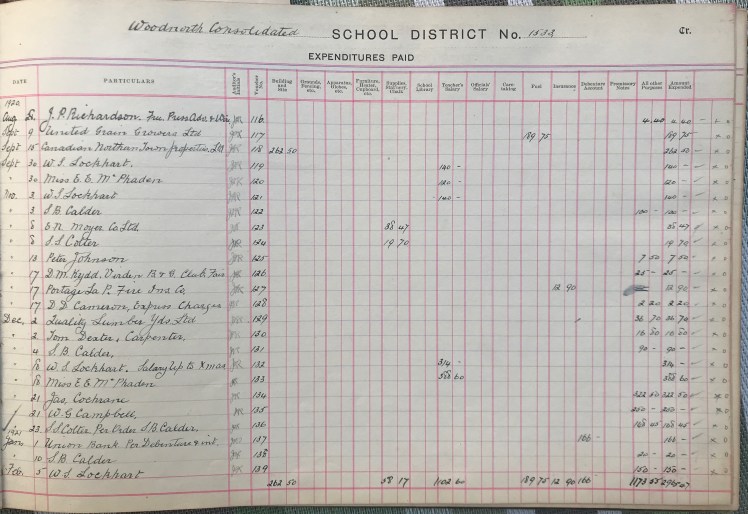 Woodnorth Consolidated SCHOOL DISTRICT No. 1533 Cr.
EXPENDITURES PAID
DATE PARTICULARS Voucher No. Building and Site Grounds, Fencing, etc. Apparatus, Globes, etc. Furniture, Heater, Cupboard, etc. Supplies, Chalk School Library Teacher's Salary Officials' Salary Care taking Fuel Insurance Debenture Account Promissory Notes All other Purposes Amount Expended
1920
Aug J. P. Richardson. 116 4 40
Sept 9 United Grain Growers Ltd 117 189 75 189 75
Sept 15 Canadian Northern Town Properties Ltd 118 262 50 262 50
Sept 30 W. S. Lockhart. 119 140 - 140 -
" 30 Miss E. E. McPhaden 120 120 - 120 -
Nov. 3 W. S. Lockhart 121 140 - 140 -
" 3 S. B. Calder 122 100 - 100 -
" 6 E. N. Moyer Co Ltd. 123 38 47 38 47
" 8 S. S. Colter 124 19 70 19 70
" 13 Peter Johnson 125 7 50 7 50
" 17 D. M. Kydd. Virden B & G. Club Fair 126 25 - 25 -
" 17 Portage La P. Fire Ins Co. 127 12 90 12 90
" 17 D. D. Cameron, Express Charges 128 2 20 2 20
Dec. 2 Quality Lumber Yds. Ltd 129 36 70 36 70
" 2 Tom Dexter, Carpenter, 130 16 50 16 50
" 4 S. B. Calder, 131 90 - 90 -
" 8 W. S. Lockhart. Salary Up to Xmas 132 314 - 314 -
" 8 Miss E. E. McPhaden 133
" 21 Jas, Cochrane 134 322 50 322 50
" 21 W. G Campbell, 135 250 - 250 -
" 23 S. S Colter Per Order S. B. Calder. 136 168 45 168 45
1921
Jan 1 Union Bank Per Debenture & int. 137 166 - 166 -
" 10 S. B. Calder 138 20 - 20 -
Feb. 5 W. S. Lockhart 139 150 - 150 -
262 50 58 17 1102 60 189 75 12 90 166 - 1173 55